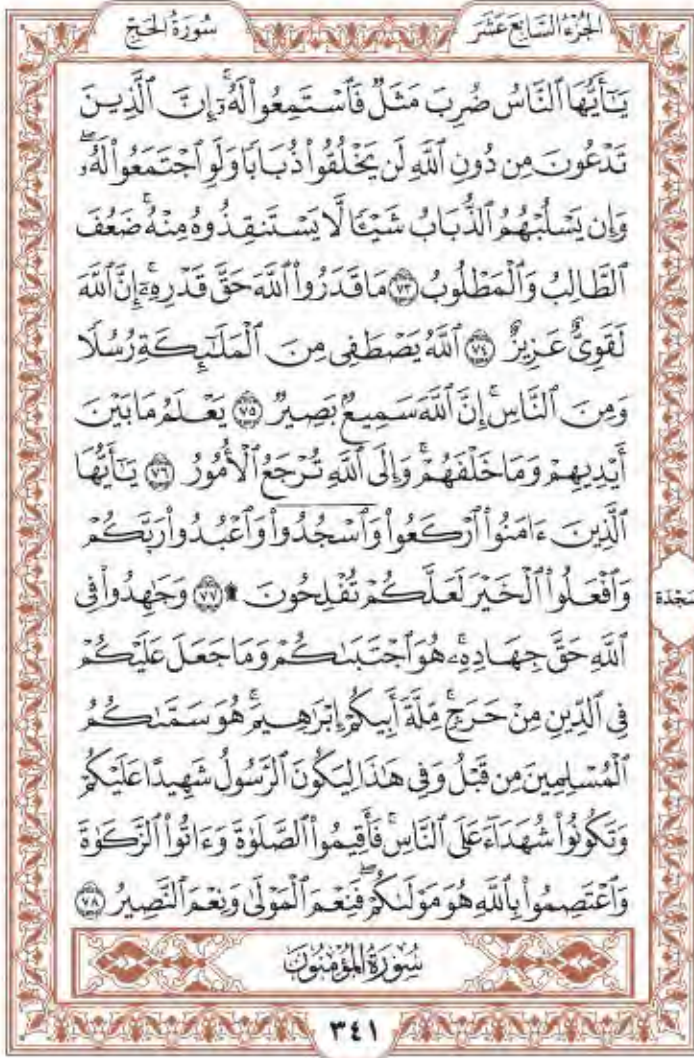 الجُزْءُ السَّابِعَ عَشَرَ
سُورَةُ الحَجِّ
يَـٰٓأَيُّهَا ٱلنَّاسُ ضُرِبَ مَثَلٌ فَٱسْتَمِعُوا۟ لَهُۥٓ ۚ إِنَّ ٱلَّذِينَ
تَدْعُونَ مِن دُونِ ٱللَّهِ لَن يَخْلُقُوا۟ ذُبَابًا وَلَوِ ٱجْتَمَعُوا۟ لَهُۥ ۖ
وَإِن يَسْلُبْهُمُ ٱلذُّبَابُ شَيْـًٔا لَّا يَسْتَنقِذُوهُ مِنْهُ ۚ ضَعُفَ
ٱلطَّالِبُ وَٱلْمَطْلُوبُ ٧٣ مَا قَدَرُوا۟ ٱللَّهَ حَقَّ قَدْرِهِۦٓ ۚ إِنَّ ٱللَّهَ
لَقَوِىٌّ عَزِيزٌ ٧٤ ٱللَّهُ يَصْطَفِى مِنَ ٱلْمَلَـٰٓئِكَةِ رُسُلًا
وَمِنَ ٱلنَّاسِ ۚ إِنَّ ٱللَّهَ سَمِيعٌۢ بَصِيرٌ ٧٥ يَعْلَمُ مَا بَيْنَ
أَيْدِيهِمْ وَمَا خَلْفَهُمْ ۗ وَإِلَى ٱللَّهِ تُرْجَعُ ٱلْأُمُورُ ٧٦ يَـٰٓأَيُّهَا
ٱلَّذِينَ ءَامَنُوا۟ ٱرْكَعُوا۟ وَٱسْجُدُوا۟ وَٱعْبُدُوا۟ رَبَّكُمْ
وَٱفْعَلُوا۟ ٱلْخَيْرَ لَعَلَّكُمْ تُفْلِحُونَ ۩ ٧٧ وَجَـٰهِدُوا۟ فِى
سَجْدَة
ٱللَّهِ حَقَّ جِهَادِهِۦ ۚ هُوَ ٱجْتَبَىٰكُمْ وَمَا جَعَلَ عَلَيْكُمْ
فِى ٱلدِّينِ مِنْ حَرَجٍ ۚ مِّلَّةَ أَبِيكُمْ إِبْرَٰهِيمَ ۚ هُوَ سَمَّىٰكُمُ
ٱلْمُسْلِمِينَ مِن قَبْلُ وَفِى هَـٰذَا لِيَكُونَ ٱلرَّسُولُ شَهِيدًا عَلَيْكُمْ
وَتَكُونُوا۟ شُهَدَآءَ عَلَى ٱلنَّاسِ ۚ فَأَقِيمُوا۟ ٱلصَّلَوٰةَ وَءَاتُوا۟ ٱلزَّكَوٰةَ
وَٱعْتَصِمُوا۟ بِٱللَّهِ هُوَ مَوْلَىٰكُمْ ۖ فَنِعْمَ ٱلْمَوْلَىٰ وَنِعْمَ ٱلنَّصِيرُ ٧٨
سُورَةُ المُؤْمِنُونَ
٣٤١